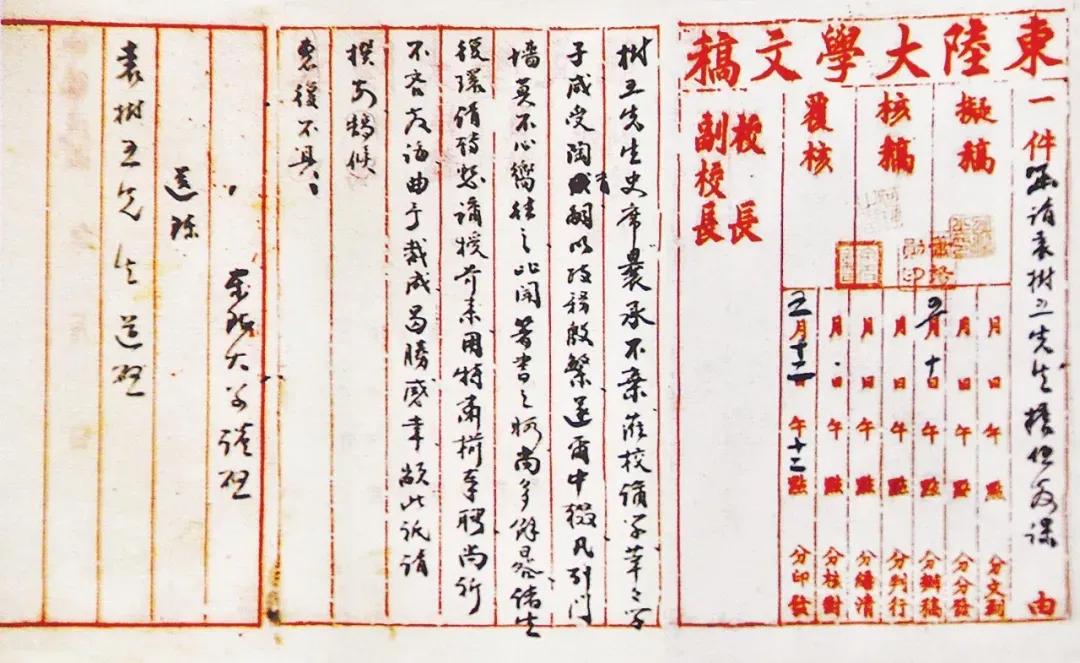 東陸大學文稿
一件函請袁樹五先生擔任教課由
擬稿
核稿
覆核
校長
副校長
月日午點分文到
月日午點分分發
月十日午點分辦稿
月日午點分判行
月日午點分繕清
月日午點分核對
五月十二日午十二點分印發
樹五先生史席曩承不棄蒞校講學莘々學
子咸受陶嗣以政務殷繁遂爾中輟凡列門
墻莫不心嚮往之比聞著書之暇尚多餘晷諸生
復環請時懇講授前來用特肅楮奉聘尚祈
不吝教誨曲予裁成曷勝感幸耑此祇請
撰安鵠候
惠復不具
東陸大學謹啟
送陳
袁樹五先生道啟